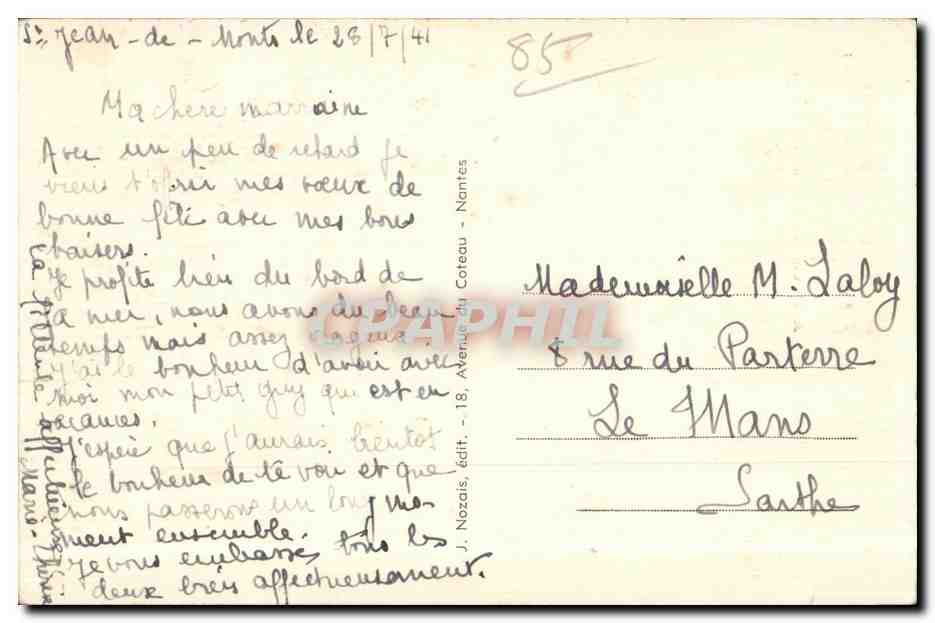 St Jean-de-Monts le 28/7/41
85
Ma chère marraine
Avec un peu de retard je
viens t'ofrir mes vœux de
bonne fête avec mes bons
baisers.
Je profite bien du bord de
la mer, nous avons du beau
temps mais assez
j'ai le bonheur d'avoir avec
moi mon petit guy qui est en
vacances.
J'espère que j'aurais bientôt
le bonheur de te voir et que
nous passerons un long mo-
ment ensemble.
Je vous embrasse tous les
deux bien affectueusement.
ta filleule affectueuse
Marie-Thérèse
J. Nozais, édit. - 18, Avenue du Coteau - Nantes
Mademoiselle M. Laboy
8 rue du Parterre
Le Mans
Sarthe
CPAPHIL